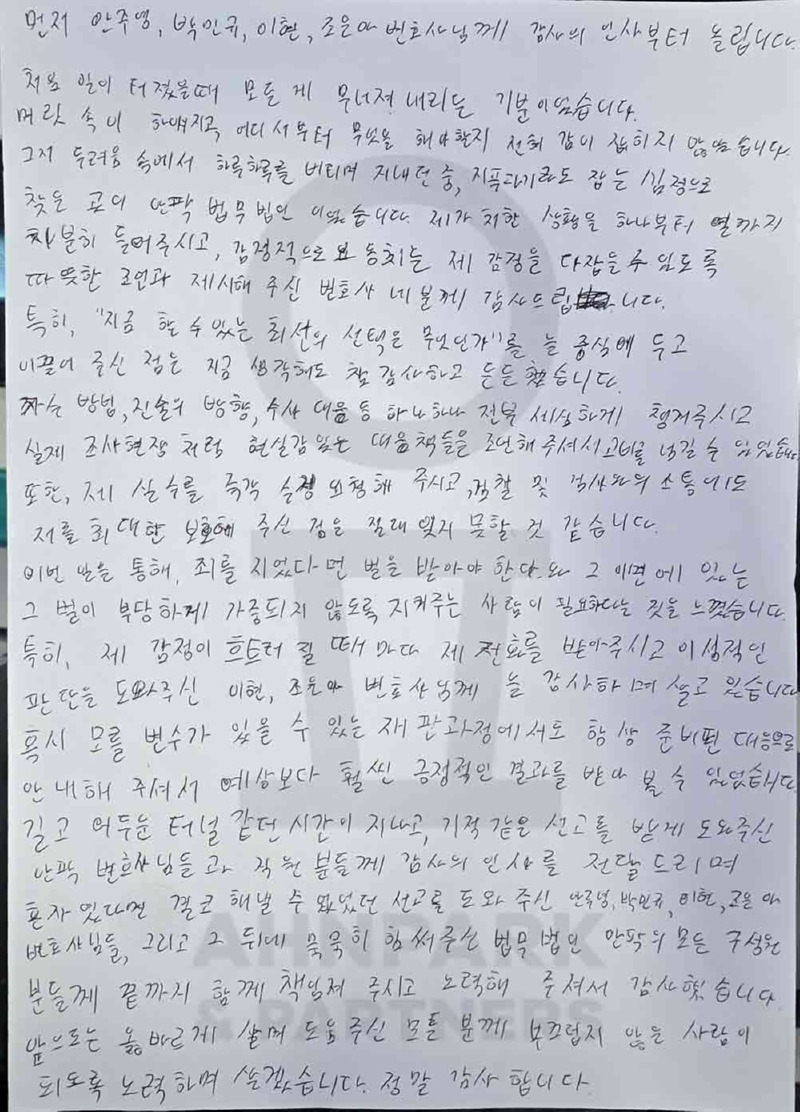 먼저 안주영, 박민규, 이현, 조은아 변호사님께 감사의 인사부터 올립니다.
처음 일이 터졌을때 모든 게 무너져 내리는 기분이었습니다.
머릿 속이 하얘지고, 어디서부터 무엇을 해야할지 전혀 감이 잡히지 않았습니다.
그저 두려움 속에서 하루하루를 버티며 지내던 중, 지푸라기라도 잡는 심정으로
찾은 곳이 안팍 법무법인 이었습니다. 제가 처한 상황을 하나부터 열까지
차분히 들어주시고, 감정적으로 요동치는 제 감정을 다잡을 수 있도록
따뜻한 조언과 제시해 주신 변호사 네분께 감사드립니다.
특히, "지금 할 수 있는 최선의 선택은 무엇인가"를 늘 중심에 두고
이끌어 주신 점은 지금 생각해도 참 감사하고 든든했습니다.
방법, 진술의 방향, 수사 대응 등 하나하나 전부 세심하게 챙겨주시고
실제 조사현장 처럼 현실감있는 대응책들을 조언해 주셔서 고비를 넘길 수 있었습니다.
또한, 제 실수를 즉각 수정 요청해 주시고, 검찰 및 검사와의 소통에도
저를 최대한 보호해 주신 점을 절대 잊지 못할 것 같습니다.
이번 일을 통해, 죄를 지었다면 벌을 받아야 한다.와 그 이면에 있는
그 벌이 부당하게 가중되지 않도록 지켜주는 사람이 필요하다는 것을 느꼈습니다.
특히, 제 감정이 흐트러 질 때 마다 제 전화를 받아주시고 이성적인
판단을 도와주신 이현, 조은아 변호사님께 늘 감사하며 살고 있습니다
혹시 모를 변수가 있을 수 있는 재판과정에서도 항상 준비된 대응으로
안내해 주셔서 예상보다 훨씬 긍정적인 결과를 받아 볼 수 있었습니다.
길고 어두운 터널 같던 시간이 지나고, 기적 같은 선고를 받게 도와주신
안팍 변호사님들과 직원 분들께 감사의 인사를 전달 드리며
혼자 있다면 결코 해낼 수 없었던 선고를 도와 주신 안주영, 박민규, 이현, 조은아
변호사님들, 그리고 그 뒤에 묵묵히 힘써주신 법무법인 안팍의 모든 구성원
분들께 끝까지 함께 책임져 주시고 노력해 주셔서 감사했습니다.
앞으로는 올바르게 살며 도움주신 모든 분께 부끄럽지 않은 사람이
되도록 노력하며 살겠습니다. 정말 감사 합니다.
AHNPARK
& PARTNERS